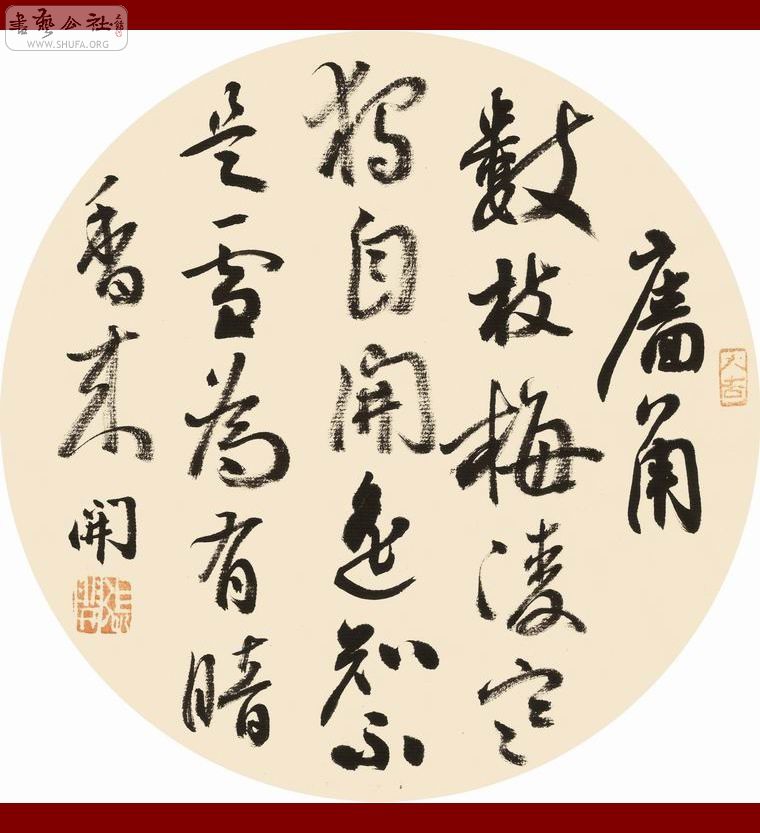 書藝公社
WWW.SHUFA.ORG
牆角
數枝梅凌寒
獨自開遙知不
是雪為有暗
香來
開